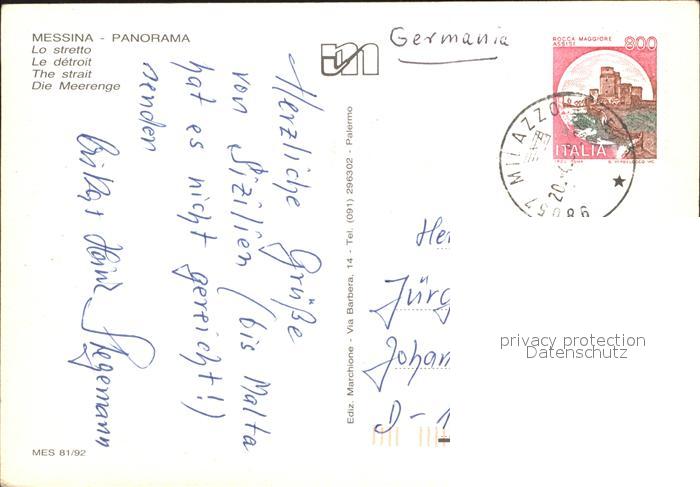 MESSINA - PANORAMA
Lo stretto
Le détroit
The strait
Die Meerenge
Germania
ROCCA MAGGIORE
ASSISI
800
ITALIA
MILAZZO
98057
20.
Herzliche Grüße
von Sizilien (bis Malta
hat es nicht gereicht!)
senden
Heinz Stegemann
Ediz. Marchione - Via Barbera, 14 - Tel. (091) 296302 - Palermo
Her
Jürg
Johan
D-1
privacy protection
Datenschutz
MES 81/92